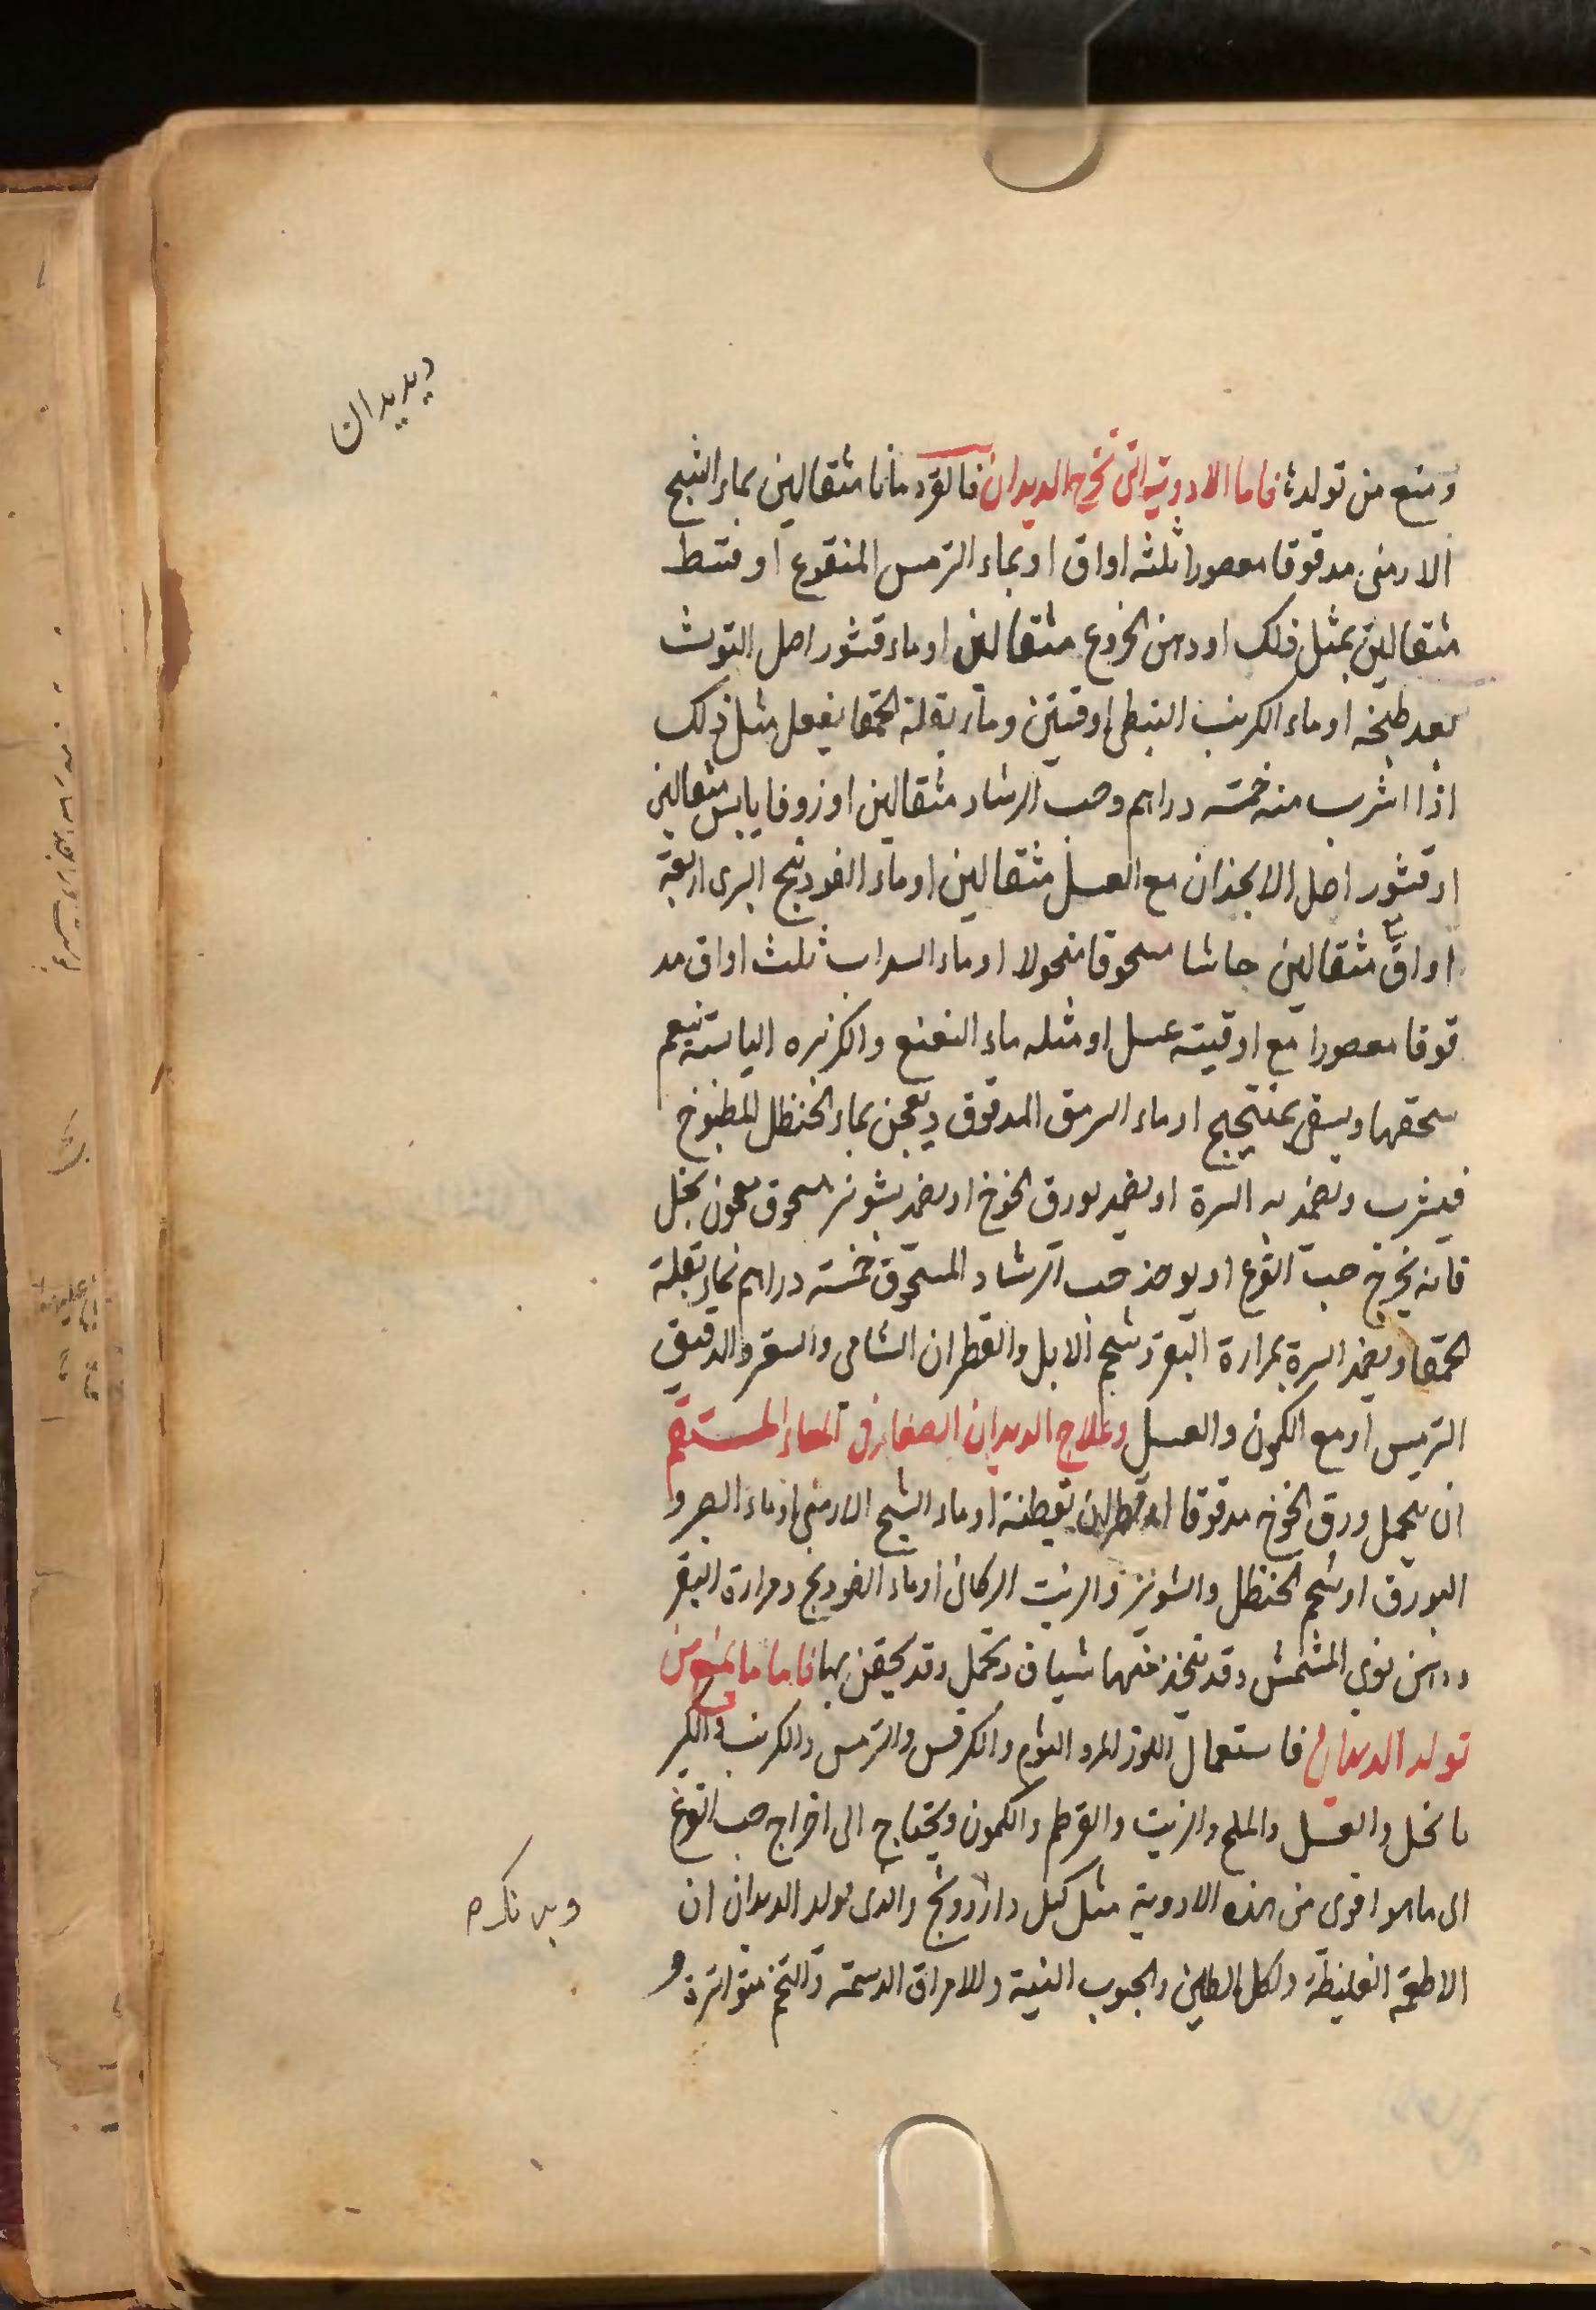 ديديدان
ومنع من تولدها فاما الادوية التى تخرج الديدان فالقردمانا مثقالين بماء الشيح
الارمنى مدقوقا معصورا ثلثه اواق او بماء الترمس المنقوع او قسط
مثقالين بمثل ذلك او دهن الخروع مثقالين او ماء قشور اصل التوث
بعد طبخه او ماء الكرنب النبطى اوقيتين وماء بقلة الحمقا يفعل مثل ذلك
اذا اشرب منه خمسة دراهم وحب الرشاد مثقالين او زوفا يابس مثقالين
او قشور اصل الانجذان مع العسل مثقالين او ماء الفودنج البرى اربعة
اواق مثقالين حاشا مسحوقا منخولا او ماء السداب ثلث اواق مد
قوقا معصورا مع اوقية عسل او مثله ماء النعنع والكزبره اليابسة ينعم
سحقها ويسقى بمنتجيج او ماء السرمق المدقوق ويعجن بماء الحنظل المطبوخ
فيشرب ويضمد به السرة او يضمد بورق الخوخ او يضمد بشونيز مسحوق معجون بخل
فانه يخرج حب القرع او يوخذ حب الرشاد المسحوق خمسة دراهم بماء بقلة
الحمقا ويضمد السرة بمرارة البقر وشحم الابل والقطران الشامى والسقر والدقيق
الترمس او مع الكمون والعسل وعلاج الديدان الصغار فى المعاء المستقيم
ان يتحمل ورق الخوخ مدقوقا او قطران بقطنة او ماء الشيح الارمنى او ماء الصبر و
البورق او شحم الحنظل والشونيز والزيت الركابى او ماء الفودنج ومرارة البقر
ودهن نوى المشمش وقد يتخذ منهما شياف وتحمل وقد يحقن بها فاما ما يمنع من
تولد الديدان فاستعمال اللوز المر والثوم والكرفس والترمس والكرنب والكبر
بالخل والعسل والملح والزيت والقرطم والكمون ويحتاج الى اخراج حب القرع
الى ما هو اقوى من هذه الادوية مثل كبل دارورنج والذى يولد الديدان ان
الاطعمة الغليظة وكل الطين والحبوب النية وللامراق الدسمة والتخم متواترة و